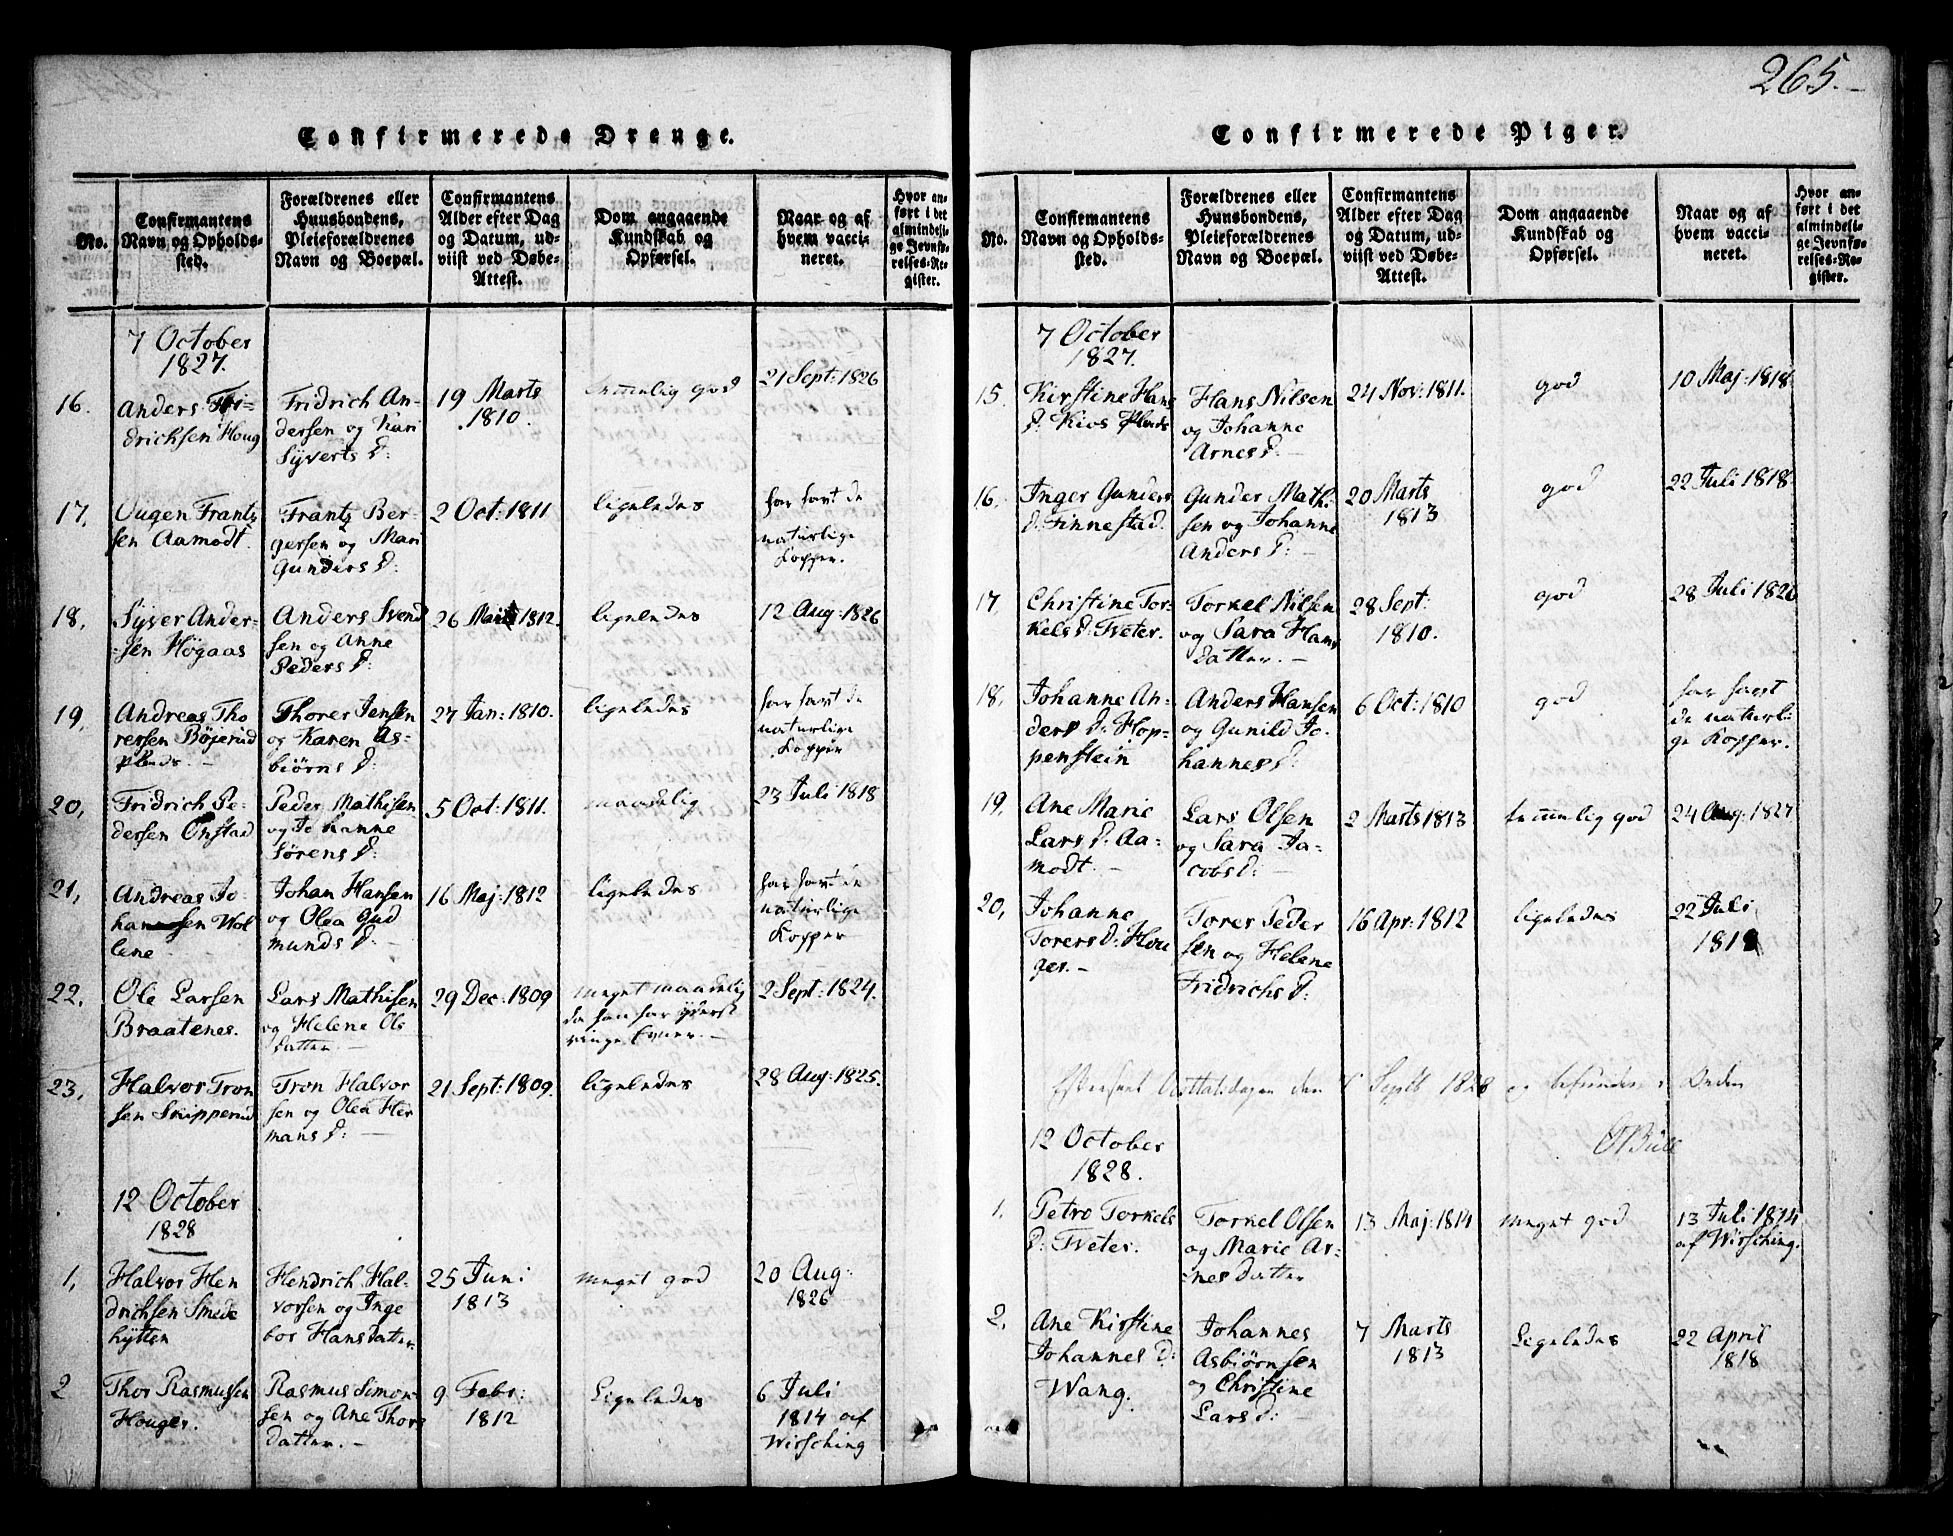 265.
Confirmerede Drenge.
No.
Confirmantens Navn og Opholdssted.
Forældrenes eller Huusbondens, Pleieforældrenes Navn og Boepæl.
Confirmantens Alder efter Dag og Datum, udviist ved Døbe-Attest.
Dom angaaende Kundskab og Opførsel.
Naar og af hvem vaccineret.
Hvor anført i det almindelige Jevnførelses-Register.
7 October
1827.
16. Anders Fridrichsen Houg
Fridrich Andersen og Kari Syverts D:
19 Marts 1810.
temmelig god
21 Sept: 1826
17, Frantzsen Aamodt.
Frantz Bergersen og Mari Gunders D:
2 Oct: 1811
ligeledes
har havt de naturlige Kopper.
18, Syver Andersen Høgaas
Anders Svendsen og Anne Peders D:
26 1812.
ligeledes
12 Aug: 1826
19, Andreas Thorersen Böjerud Plads. –
Thorer Jensen og Karen Asbiörns D:
27 Jan: 1810.
ligeledes
har havt de naturlige Kopper
20, Fridrich Pedersen Onstad
Peder Mathisen og Johanne Sörens D:
5 Oct: 1811.
maadelig
23 Juli 1818
21, Andreas Johansen Wollene
Johan Hansen og Olea Gudmunds D: –
16 Maj: 1812
ligeledes
har havt de naturlige Kopper
22, Ole Larsen Braatenes.
Lars Mathisen og Helene Olsdatter. –
29 Dec: 1809
meget maadelig da han har yderst ringe Evner. –
2 Sept: 1824.
23, Halvor Tronsen Skipperud
Tron Halvorsen og Olea Hermans D: –
21 Sept: 1809.
ligeledes
28 Aug: 1825.
12 October
1828
1, Halvor Hendrichsen Smedehytten
Hendrich Halvorsen og Ingebor Hansdatter.
25 Juni 1813
meget god
20 Aug: 1826
2 Thor Rasmussen Houger.
Rasmus Simonsen og Ane Thorsdatter. –
9 Febr: 1812
Ligeledes
6 Juli 1814 af Wirsching
Confirmerede Piger.
No.
Confirmantens Navn og Opholdssted.
Forældrenes eller Huusbondens, Pleieforældrenes Navn og Boepæl.
Confirmantens Alder efter Dag og Datum, udviist ved Døbe-Attest.
Dom angaaende Kundskab og Opførsel.
Naar og af hvem vaccineret.
Hvor anført i det almindelige Jevnførelses-Register.
7 October
1827.
15. Kirstine Hans D: Kios Plads
Hans Nilsen og Johanne Arnes D. –
24 Nov: 1811.
god
10 Maj: 1818
16, Inger Gunders D: Finnestad.
Gunder Mathisen og Johanne Anders D: –
20 Marts 1813
god
22 Juli 1818
17, Christine Torkels D: Tveter.
Torkel Nilsen og Sara Hansdatter. –
28 Sept: 1810.
god
28 Juli 1826
18, Johanne Anders D: Hoppenstein
Anders Hansen og Gunild Johannes D:
6 Oct: 1810
god
har havt de naturlige Kopper.
19, Ane Marie Lars D: Aamodt. –
Lars Olsen og Sara Jacobs D: –
2 Marts 1813
temmelig god
24 Aug: 1827
20, Johanne Torers D: Houger. –
Torer Pedersen og Helene Fridrichs D:
16 Apr: 1812
ligeledes
22 Juli 1818
Efterseet den Septb 1828 og befunden i Orden
Bull
12 October
1828.
1. Petro Torkels D: Tveter.
Torkel Olsen og Marie Arnesdatter
13 Maj: 1814
meget god
13 Juli 1814 af Wirsching.
2, Ane Kirstine Johannes D: Wang.
Johannes Asbiörnsen og Christine Lars D: –
7 Marts 1813
Ligeledes
22 April 1818